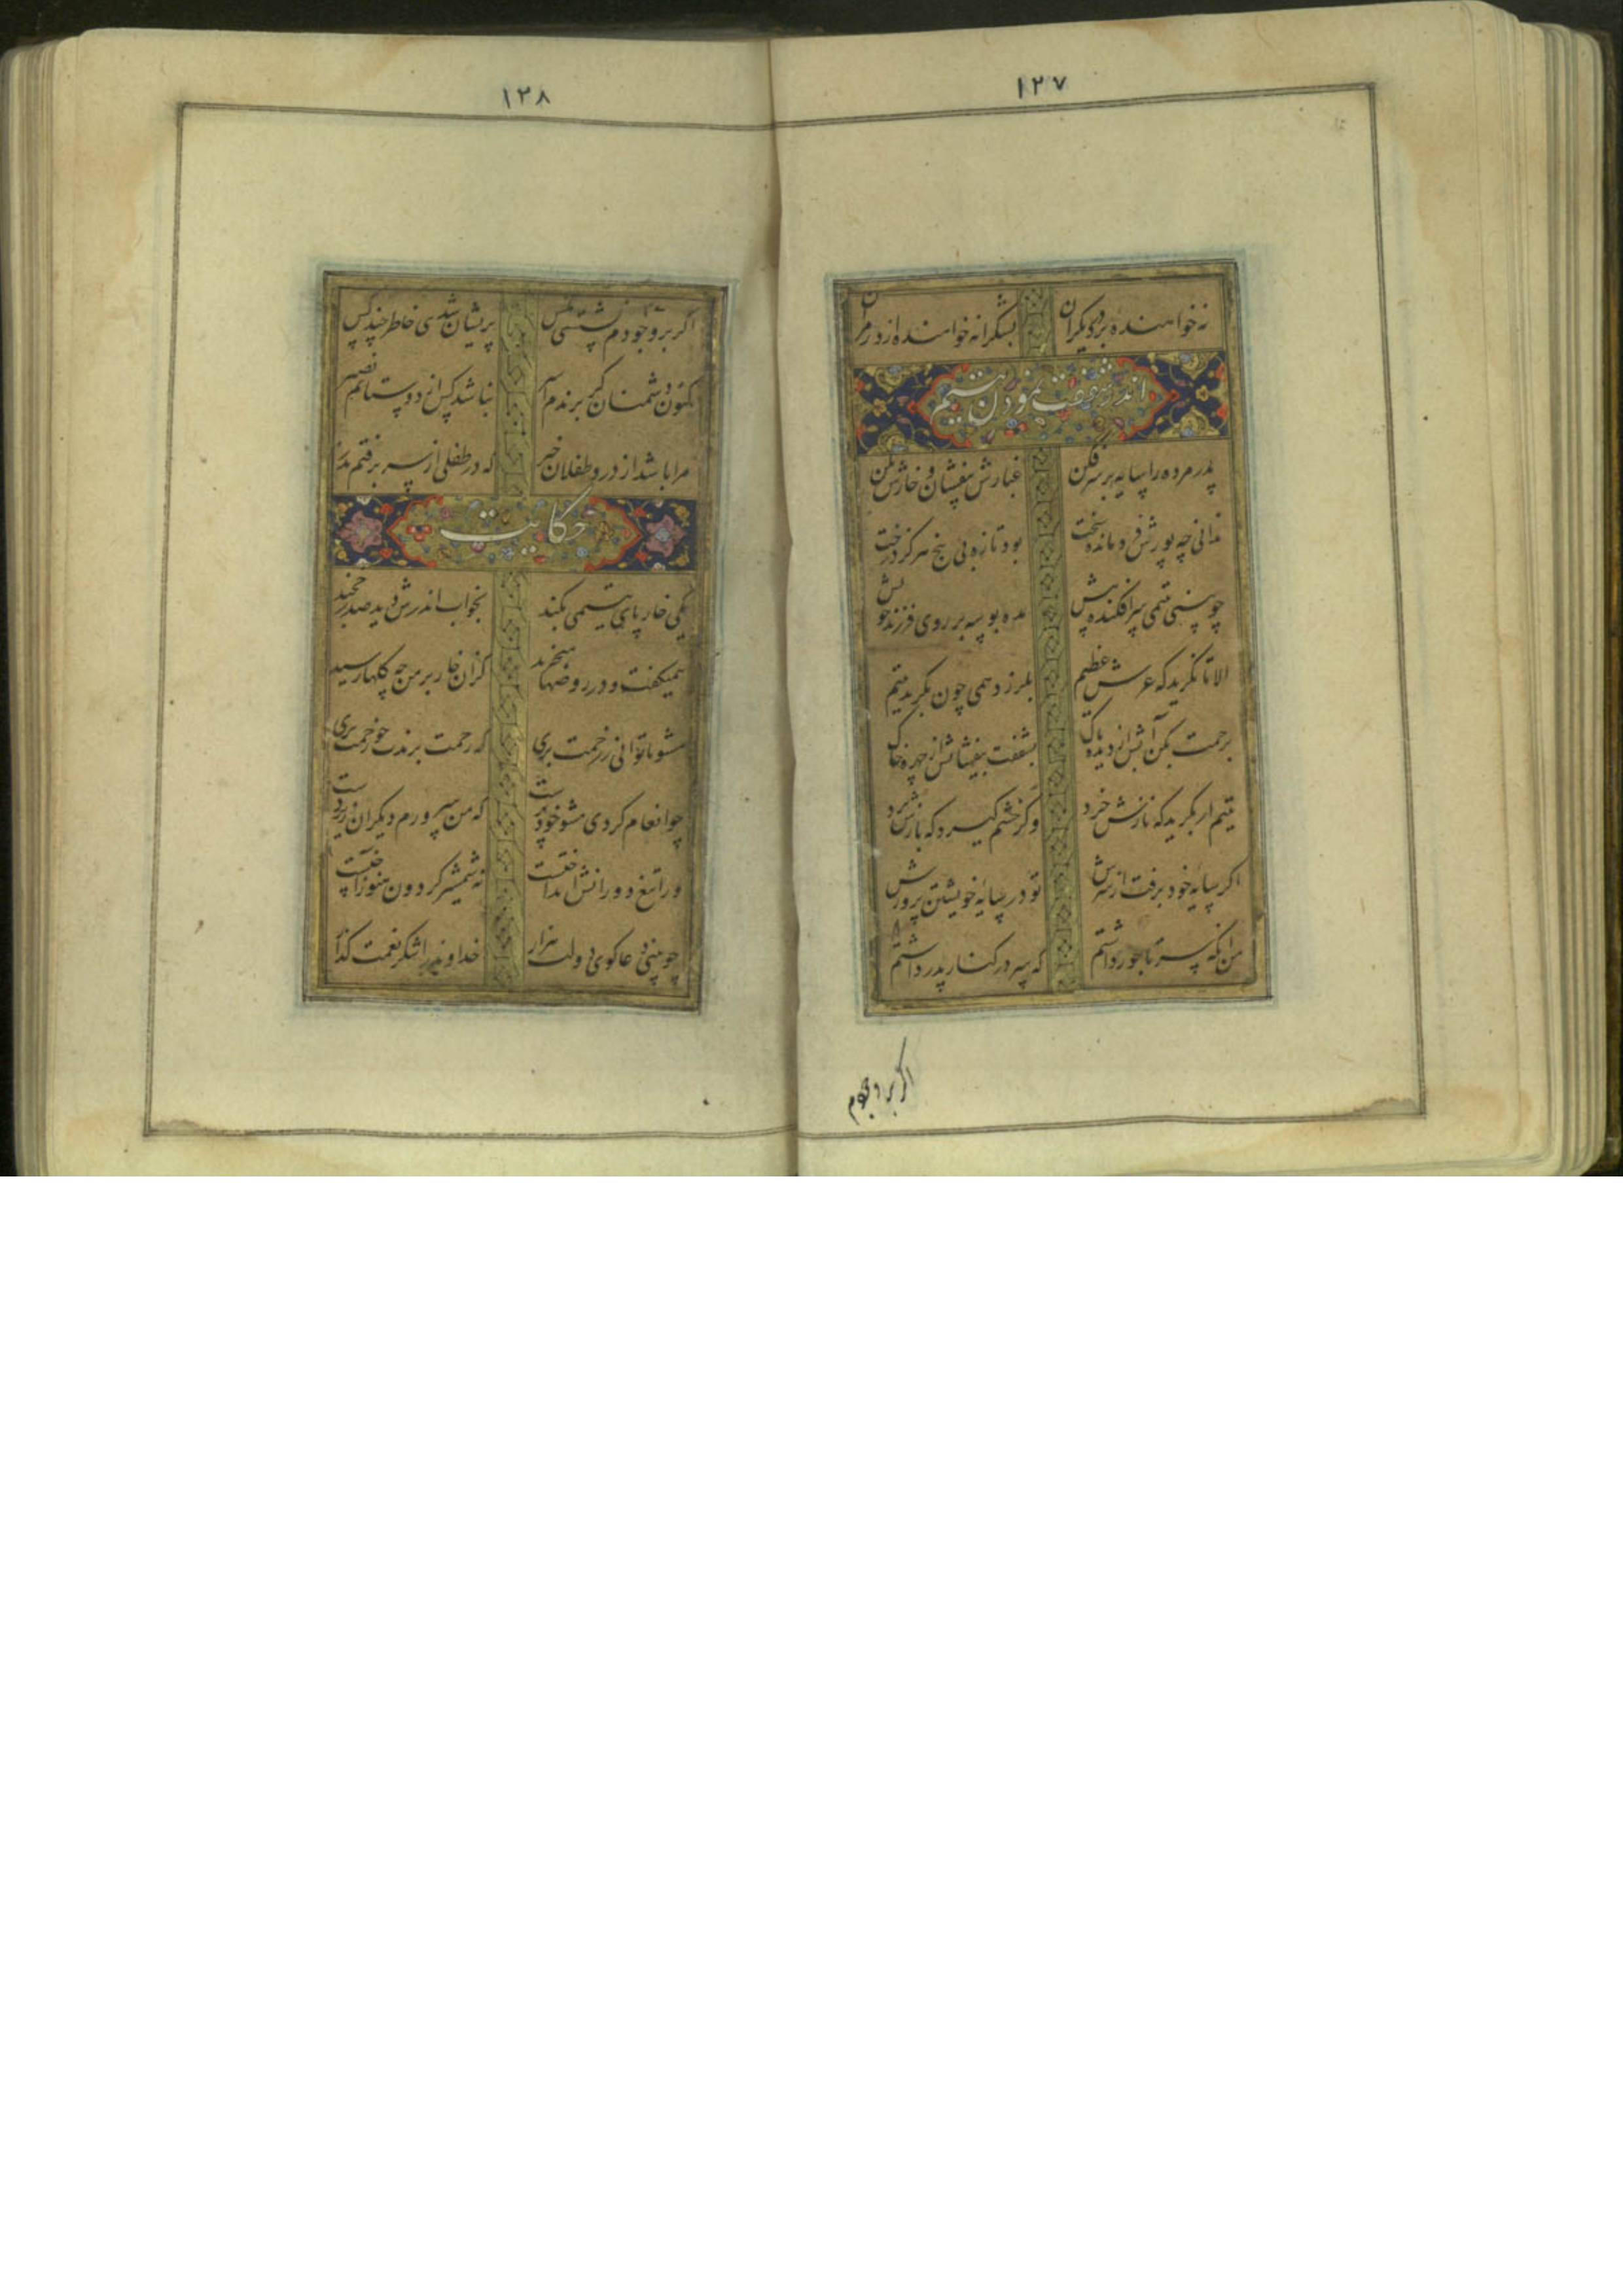 ۱۲۷
نه خواهنده بر در دیگران بشکرانه خواهنده از در مران
اندر شفقت نمودن یتیم
پدر مرده را سایه بر سر فکن غبارش بیفشان و خارش بکن
ندانی چه بودش فرو مانده سخت بود تازه بی بیخ هرگز درخت
چو بینی یتیمی سر افکنده پیش مده بوسه بر روی فرزند خویش
الا تا نگرید که عرش عظیم بلرزد همی چون بگرید یتیم
برحمت بکن آبش از دیده پاک بشفقت بیفشانش از چهره خاک
یتیم ار بگرید که نازش خرد وگر خشم گیرد که بارش برد
اگر سایه خود برفت از سرش تو در سایه خویشتن پرورش
من آنگه سر تاجور داشتم که سر در کنار پدر داشتم
اگر بر وجودم
۱۲۸
اگر بر وجودم نشستی مگس پریشان شدی خاطر چند کس
کنون دشمنان گر برندم اسیر نباشد کس از دوستانم نصیر
مرا باشد از درد طفلان خبر که در طفلی از سر برفتم پدر
حکایت
یکی خار پای یتیمی بکند بخواب اندرش دید صدر خجند
همیگفت و در روضها میچمید کزان خار بر من چه گلها رسید
مشو تا توانی ز رحمت بری که رحمت برندت چو رحمت بری
چو انعام کردی مشو خود پرست که من سرورم دیگران زیردست
ور تیغ دورانش انداختست نه شمشیر گردون هنوز آختست
چو بینی دعاگوی دولت هزار خداوند را شکر نعمت گذار